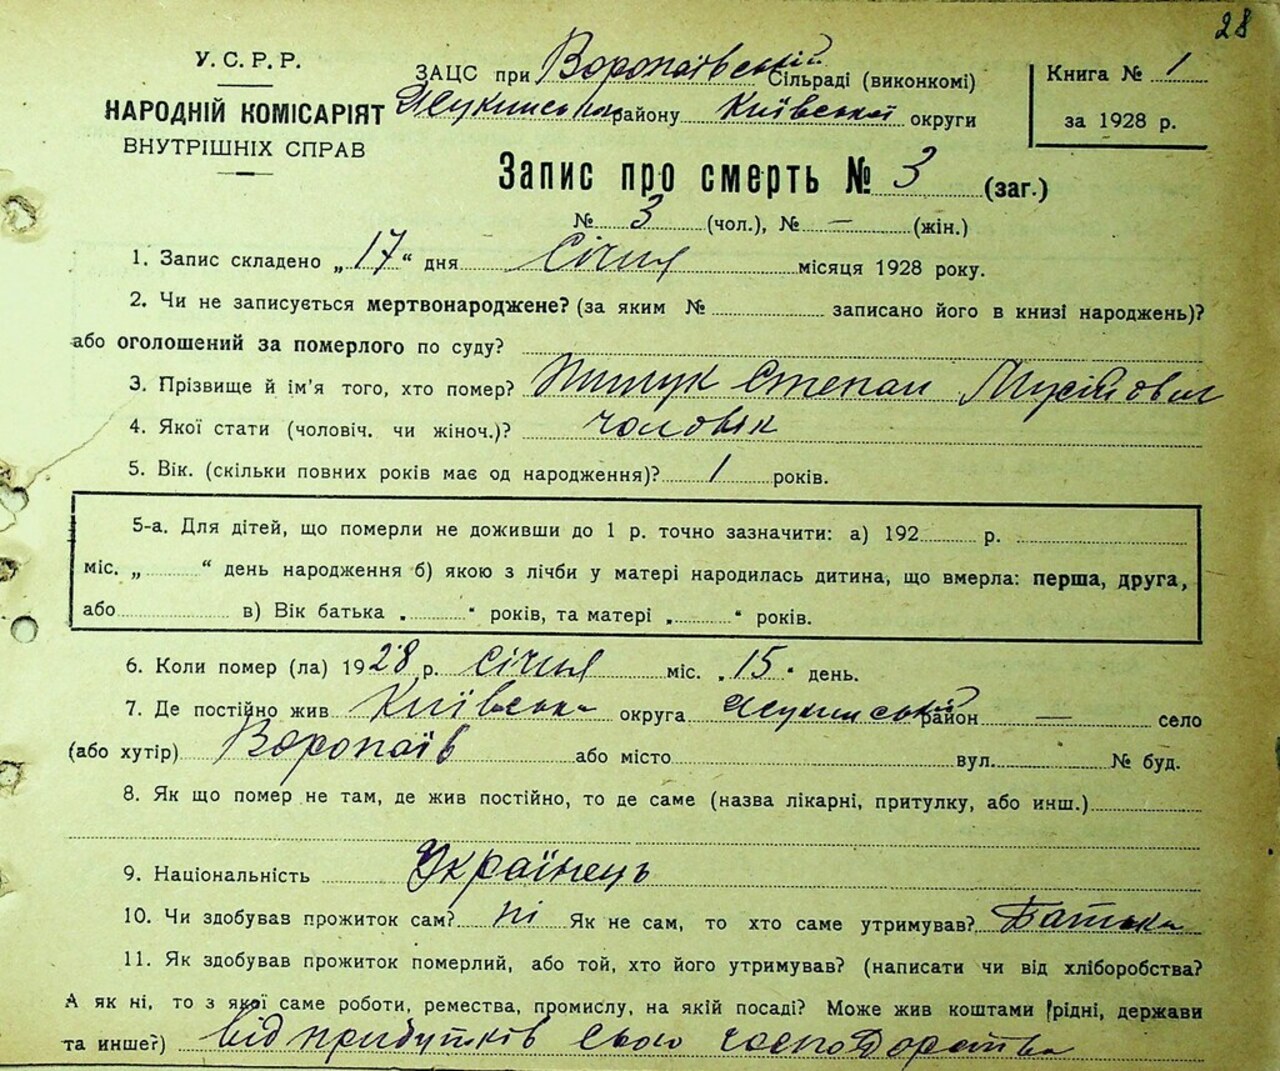 28
У. С. Р. Р.
НАРОДНІЙ КОМІСАРІЯТ
ВНУТРІШНІХ СПРАВ
ЗАЦС при Воропаївській Сільраді (виконкомі)
району Київської округи
Книга № 1
за 1928 р.
Запис про смерть № 3 (заг.)
№ 3 (чол.), № — (жін.)
1. Запис складено „17“ дня Січня місяця 1928 року.
2. Чи не записується мертвонароджене? (за яким № записано його в книзі народжень)?
або оголошений за померлого по суду?
3. Прізвище й ім'я того, хто помер? Степан Мусійович
4. Якої стати (чоловіч. чи жіноч.)? чоловік
5. Вік. (скільки повних років має од народження)? 1 років.
5-а. Для дітей, що померли не доживши до 1 р. точно зазначити: а) 192 р.
міс. „ “ день народження б) якою з лічби у матері народилась дитина, що вмерла: перша, друга,
або в) Вік батька „ “ років, та матері „ “ років.
6. Коли помер (ла) 1928 р. січня міс. „15“ день.
7. Де постійно жив Київська округа район — село
(або хутір) Воропаїв або місто вул. № буд.
8. Як що помер не там, де жив постійно, то де саме (назва лікарні, притулку, або инш.)
9. Національність Українець
10. Чи здобував прожиток сам? ні Як не сам, то хто саме утримував? Батько
11. Як здобував прожиток померлий, або той, хто його утримував? (написати чи від хліборобства?
А як ні, то з якої саме роботи, ремества, промислу, на якій посаді? Може жив коштами (рідні, держави
та инше?) від прибутків свого господарства